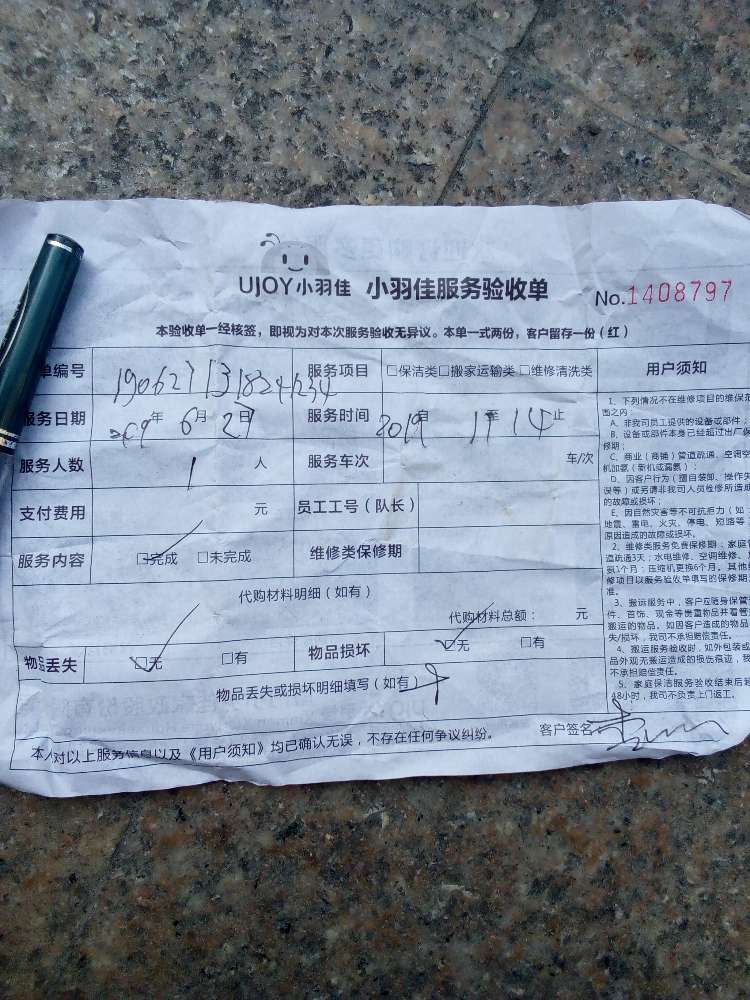 UJOY小羽佳 小羽佳服务验收单 No.1408797
本验收单一经核签，即视为对本次服务验收无异议。本单一式两份，客户留存一份（红）
单编号 服务项目 □保洁类□搬家运输类□维修清洗类
服务日期 年6月27日 服务时间 2019 至14止
服务人数 1人 服务车次 车/次
支付费用 元 员工工号（队长）
服务内容 □完成 □未完成 维修类保修期
代购材料明细（如有）
代购材料总额： 元
物品丢失 □无 □有 物品损坏 □无 □有
物品丢失或损坏明细填写（如有）
客户签名
本人对以上服务信息以及《用户须知》均已确认无误，不存在任何争议纠纷。
用户须知
1、下列情况不在维修项目的维保范
围之内：
A、非我司员工提供的设备或部件；
B、设备或部件本身已经超过出厂保
修期；
C、商业（商铺）管道疏通，空调空
机加氨（新机或漏氨）；
D、因客户行为（擅自装卸、操作失
误等）或另请非我司人员检修所造成
的故障或损坏；
E、因自然灾害等不可抗拒力（如：
地震、雷电、火灾、停电、短路等
原因造成的故障或损坏。
2、维修类服务免费保修期：家庭管
道疏通3天；水电维修、空调维修、
氨1个月；压缩机更换6个月。其他维
修项目以服务验收单填写的保修期
准。
3、搬运服务中，客户应随身保管
件、首饰、现金等贵重物品并看管
搬运的物品。如因客户造成的物品
失/损坏，我司不承担赔偿责任。
4、搬运服务验收时，如外包装或
品外观无搬运造成的损伤痕迹，我
不承担赔偿责任。
5、家庭保洁服务验收结束后超
48小时，我司不负责上门返工。